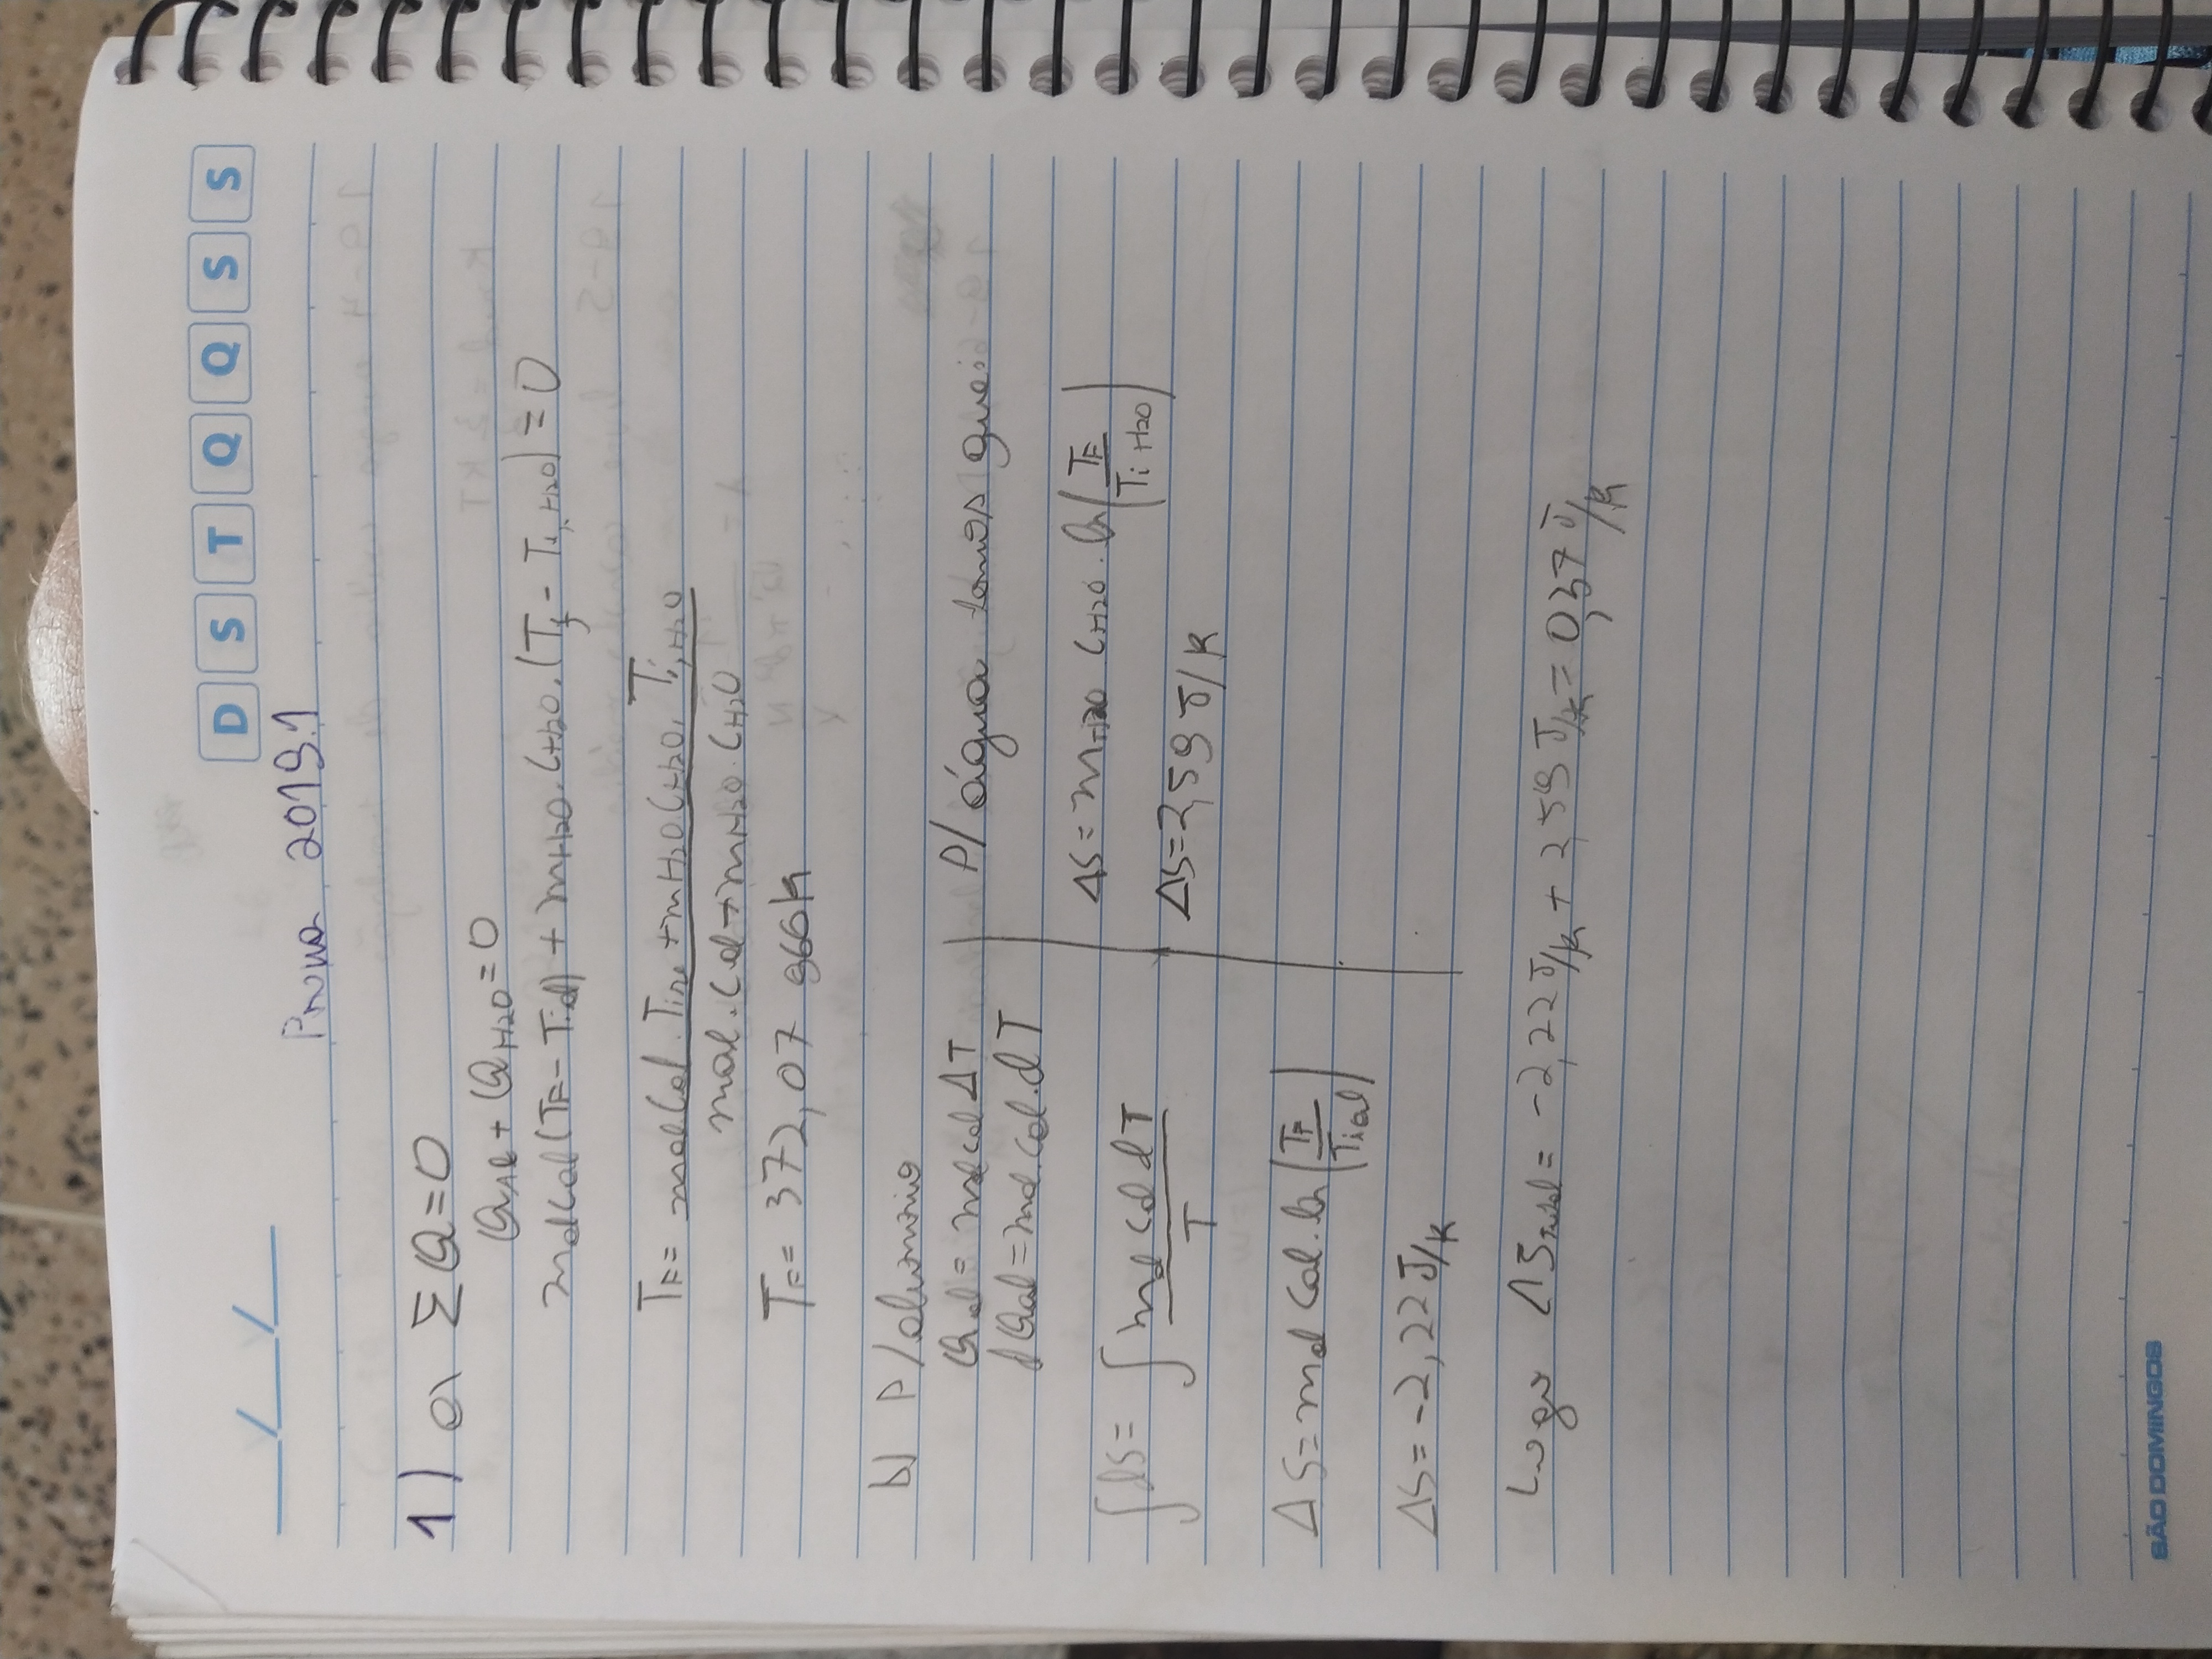 D S T Q Q S S
__/__/__
Prova 2019.1
1) a) ΣQ=0
QAl + QH2O = 0
mal cal (TF - Tial) + mH2O . CH2O . (Tf - Ti, H2O) = 0
TF = mal.Cal . Tial + mH2O.CH2O. Ti, H2O
mal . Cal + mH2O . CH2O
TF = 372,07 966K
b) P/alumínio
Qal = mal cal ΔT
dQal = mal.cal.dT
∫dS = ∫ mal cal dT
T
ΔS = mal Cal . ln (TF
Tial)
ΔS = -2,22 J/K
P/ água temos que:
ΔS = mH2O CH2O . ln (TF
Ti H2O)
ΔS = 2,59 J/K
Logo ΔStotal = -2,22 J/K + 2,59 J/K = 0,37 J/K
SÃO DOMINGOS